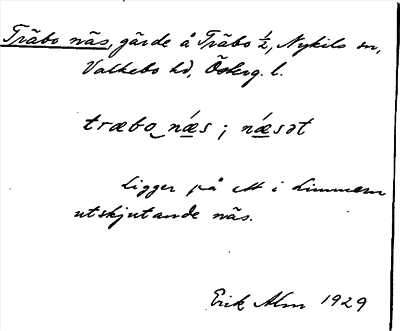 Träbo näs, gärde å Träbo ½, Nykils sn,
Valkebo hd, Österg. l.
træbo‿næ̀s ; næ̀sət
Ligger på ett i Limmern
utskjutande näs.
Erik Alm 1929